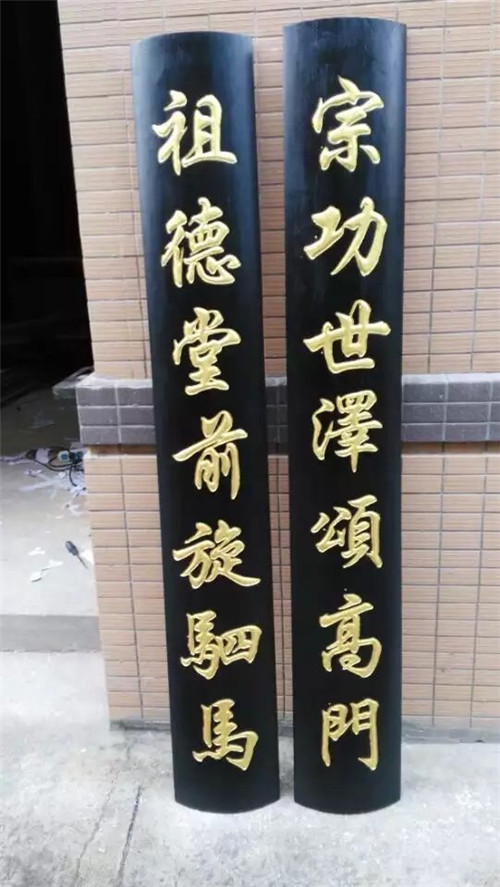 宗功世澤頌高門
祖德堂前旋駟馬